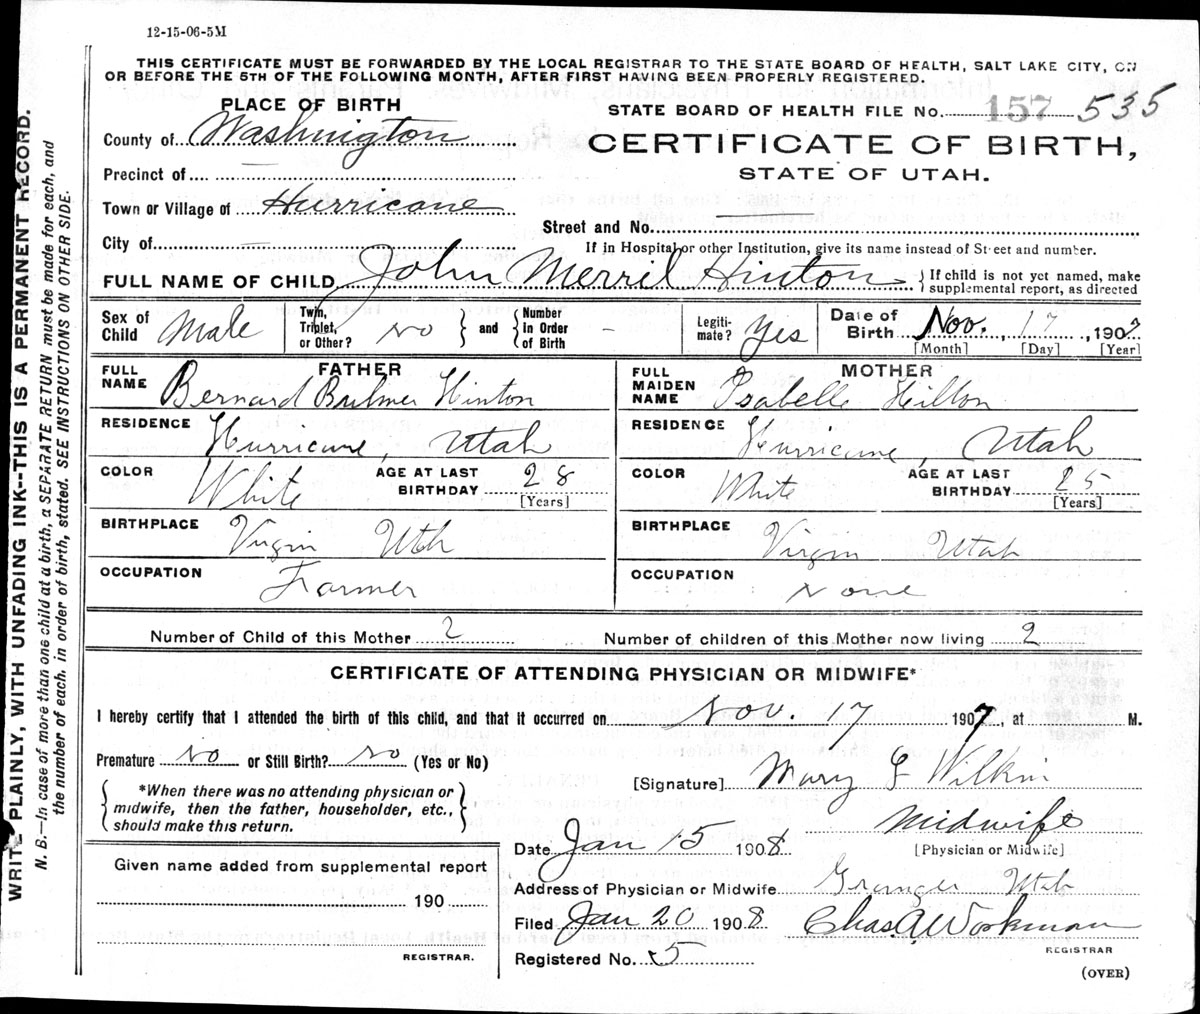 12-15-06-5M
THIS CERTIFICATE MUST BE FORWARDED BY THE LOCAL REGISTRAR TO THE STATE BOARD OF HEALTH, SALT LAKE CITY, ON
OR BEFORE THE 5TH OF THE FOLLOWING MONTH, AFTER FIRST HAVING BEEN PROPERLY REGISTERED.
PLACE OF BIRTH
STATE BOARD OF HEALTH FILE No. 157 535
County of Washington
CERTIFICATE OF BIRTH,
STATE OF UTAH.
Precinct of —
Town or Village of Hurricane
Street and No. —
City of —
If in Hospital or other Institution, give its name instead of Street and number.
FULL NAME OF CHILD John Merril Hinton { If child is not yet named, make supplemental report, as directed
Sex of Child Male Twin, Triplet, or Other? No } and { Number In Order of Birth - Legiti-mate? Yes Date of Birth Nov. 17, 1907
[Month] [Day] [Year]
FATHER
FULL NAME Bernard Bulmer Hinton
RESIDENCE Hurricane, Utah
COLOR White AGE AT LAST BIRTHDAY 28 [Years]
BIRTHPLACE Virgin Utah
OCCUPATION Farmer
MOTHER
FULL MAIDEN NAME Isabelle Hilton
RESIDENCE Hurricane, Utah
COLOR White AGE AT LAST BIRTHDAY 25 [Years]
BIRTHPLACE Virgin Utah
OCCUPATION None
Number of Child of this Mother 2 Number of children of this Mother now living 2
CERTIFICATE OF ATTENDING PHYSICIAN OR MIDWIFE*
I hereby certify that I attended the birth of this child, and that it occurred on Nov. 17 1907, at M.
Premature No or Still Birth? No (Yes or No)
[Signature] Mary
*When there was no attending physician or
midwife, then the father, householder, etc.,
should make this return.
Midwife
[Physician or Midwife]
Date Jan 15 1908
Given name added from supplemental report
190
REGISTRAR.
Address of Physician or Midwife Utah
Filed Jan 20 1908 Chas. A. Workman
REGISTRAR
Registered No. 5
(OVER)
WRITE PLAINLY, WITH UNFADING INK--THIS IS A PERMANENT RECORD.
N. B.—In case of more than one child at a birth, a SEPARATE RETURN must be made for each, and
the number of each, in order of birth, stated. SEE INSTRUCTIONS ON OTHER SIDE.